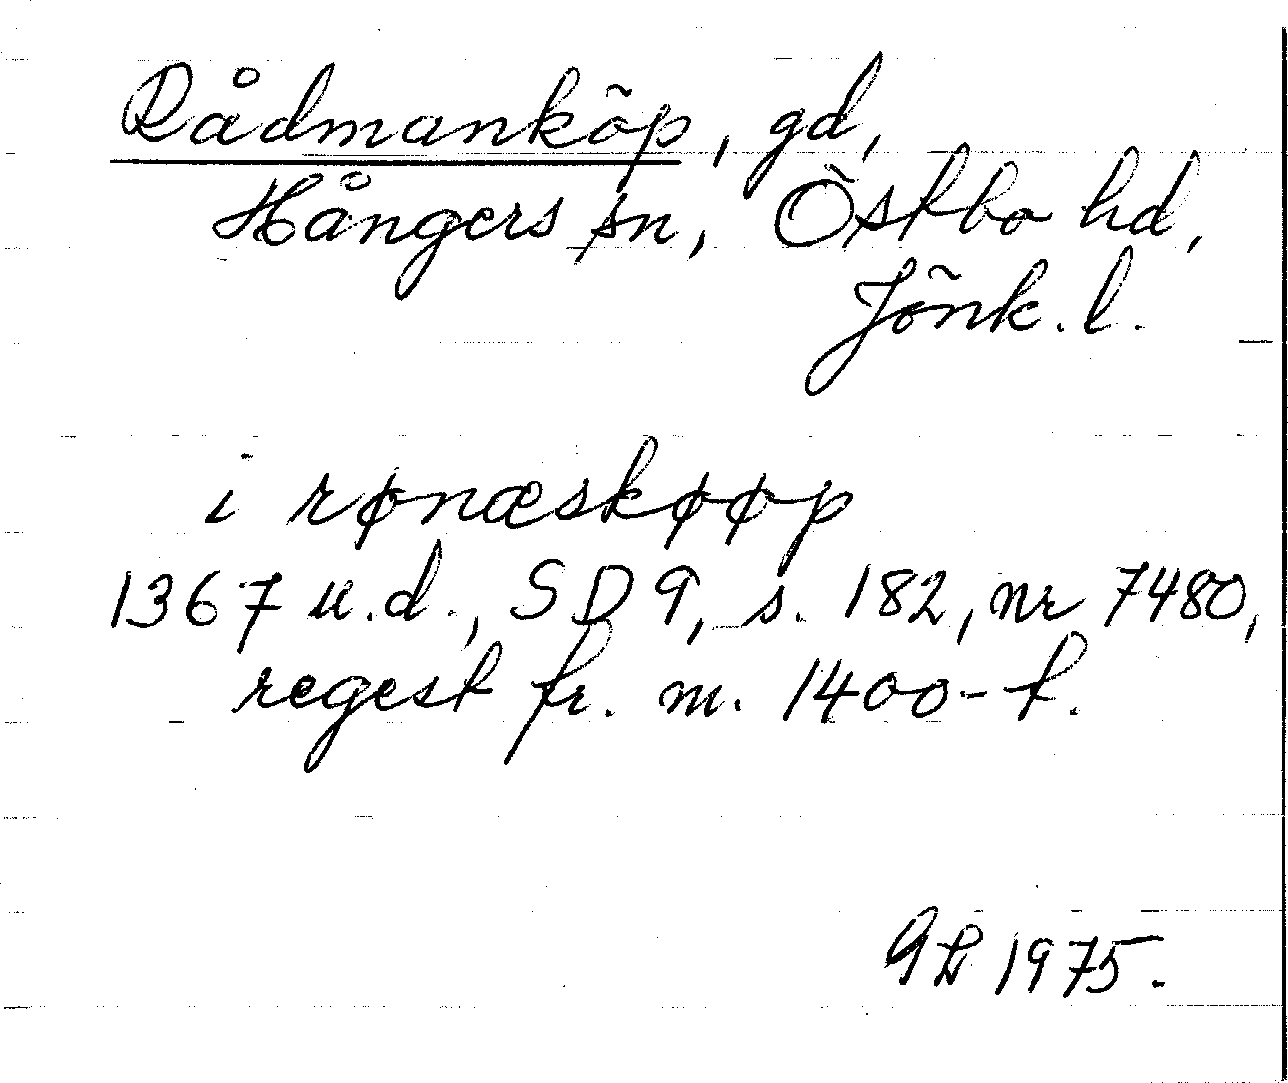 Rådmanköp, gd,
Hångers sn, Östbo hd,
Jönk. l.
i rønæskøøp
1367 u.d., SD 9, s. 182, nr 7480,
regest fr. m. 1400-t.
1975.